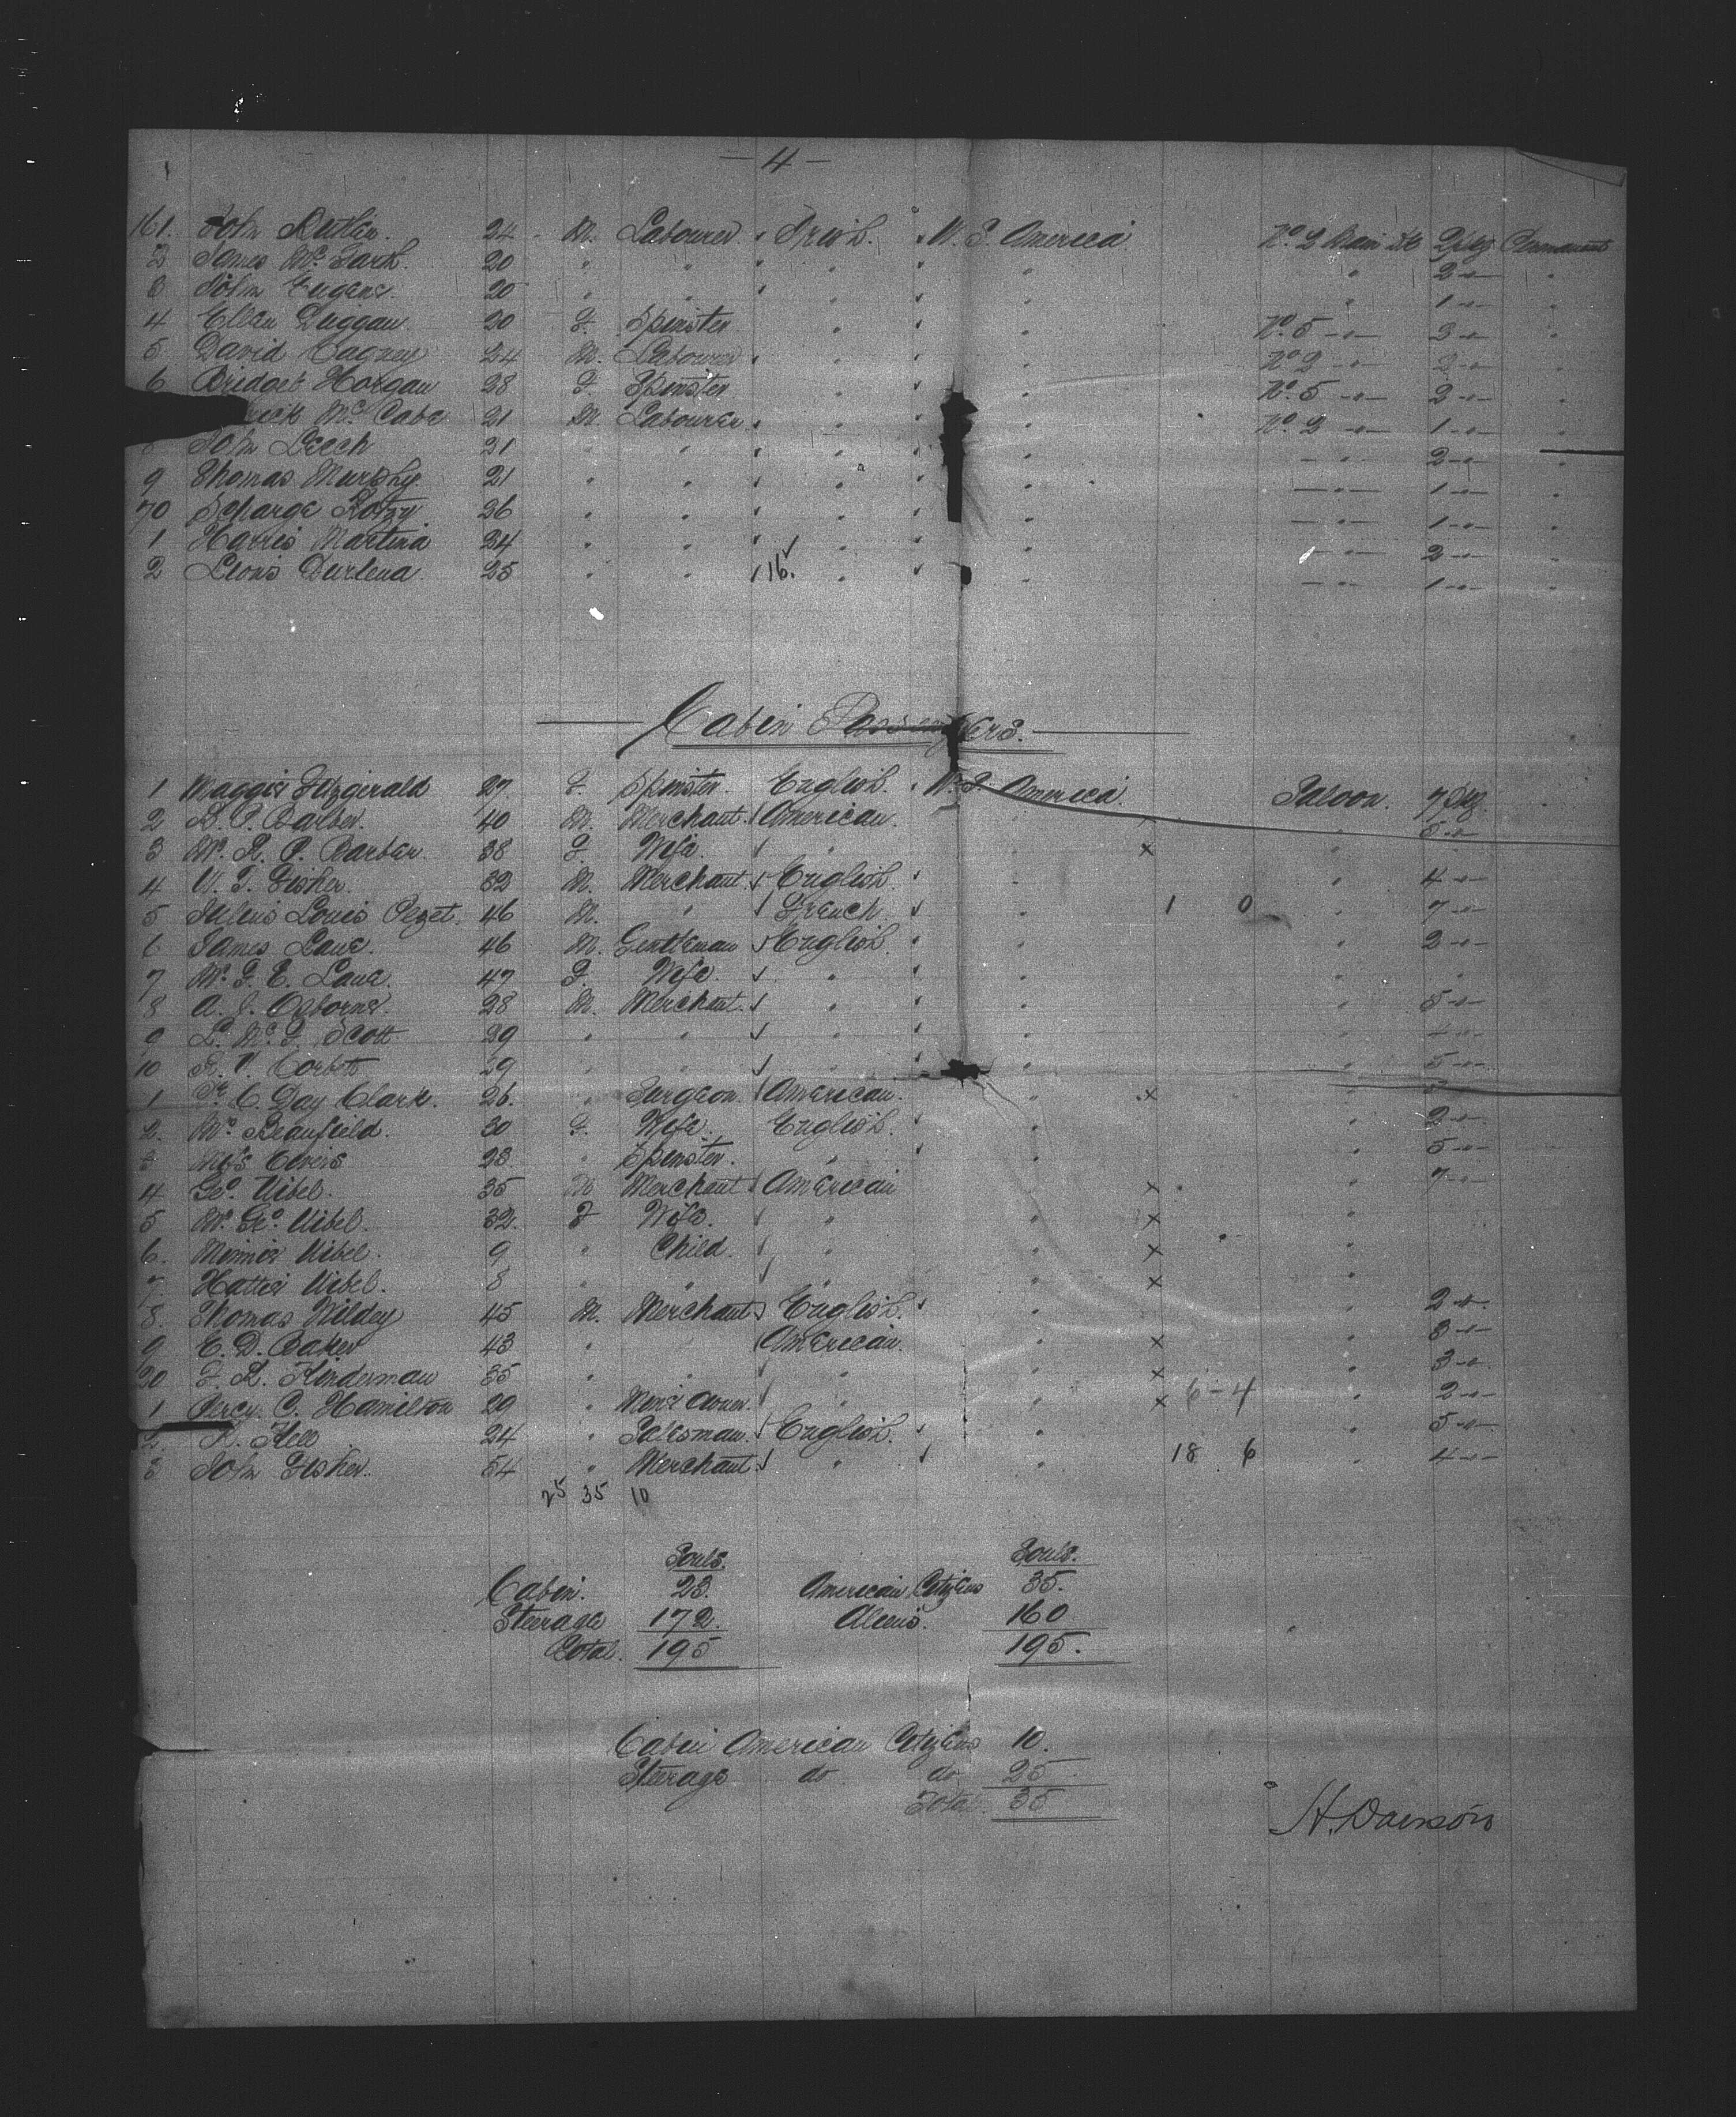 — 4 —
161. John Butler. 24 M. Labourer Irish. U. S. America No. 2 Main Dk 2 pkg Permanent
2 James Mc 20 " " " " " 2 -"-
3 John Eugene. 20 " " " " " 1 -"-
4 Ellen Duggan 20 F. Spinster " " No. 5 -"- 3 -"- "
5 David Cagney 24 M. Labourer " " No. 2 -"- 2 -"-
6 Bridget Horgan 28 F. Spinster " " No. 5 -"- 2 -"- "
rick Mc Cabe 21 M. Labourer " " No. 2 -"- 1 -"- "
8 John Leech 21 " " " " -"- 2 -"-
9 Thomas Murphy 21 " " " " -"- 1 -"- "
70 Scharge Kotzy 26 " " " " -"- 1 -"- "
1 Harris Martina 24 " " " " -"- 2 -"-
2 Leons Durlena 25 " " 16. " " -"- 1 -"- "
Cabin Passengers.
1 Maggie Fitzgerald 27 F. Spinster. English. U. S. America. Saloon. 7 pkg. "
2 R. P. Barber. 40 M. Merchant. American. " x " 5 -"-
3 Mrs. R. P. Barber. 38 F. Wife. " " x "
4 W. T. Fisher. 32 M. Merchant. English. " " 4 -"-
5 Jules Louis Pezet. 46 M. " French. " 1 0 " 7 -"-
6 James Lane. 46 M. Gentleman English. " " 2 -"-
7 Mrs. F. E. Lane. 47 F. Wife. " " " "
8 A. J. Osborne. 28 M. Merchant. " " " 5 -"-
9 L. Mc. F. Scott 29 " " " " " 4 -"-
10 R. V. Corbett 29 " " " " " 5 -"-
1 Dr. C. Day Clark. 26. " Surgeon. American. " x " 5
2. Mrs. Beaufield. 30 F. Wife. English. " " 2 -"-
3 Miss 23. " Spinster. " " " 5 -"-
4 Geo. Uibel. 35 M Merchant American " x " 7 -"-
5 Mrs. Geo. Uibel. 32. F Wife. " " x "
6. Minnie Uibel. 9 " Child. " " x "
7. Hattie Uibel. 8 " " " " x "
8. Thomas Wildey 45 M. Merchant English. " " 2 -"-
9 E. D. Baker 43 " American. " x " 3 -"-
20 F. R. Kinderman 35 " " " " x " 3 -"-
1 Percy. C. Hamilton 29 " Mine Owner. " " x 6 - 4 " 2 -"-
2 24 " Salesman. English. " " 5 -"-
3 John Fisher. 54 " Merchant " " 18 6 " 4 -"-
25 35 10
Souls. Souls.
Cabin. 23. American Citizens 35.
Steerage 172. Aliens. 160
Total. 195 195.
Cabin American Citizens 10.
Steerage do do 25
Total. 35
H. Dawson